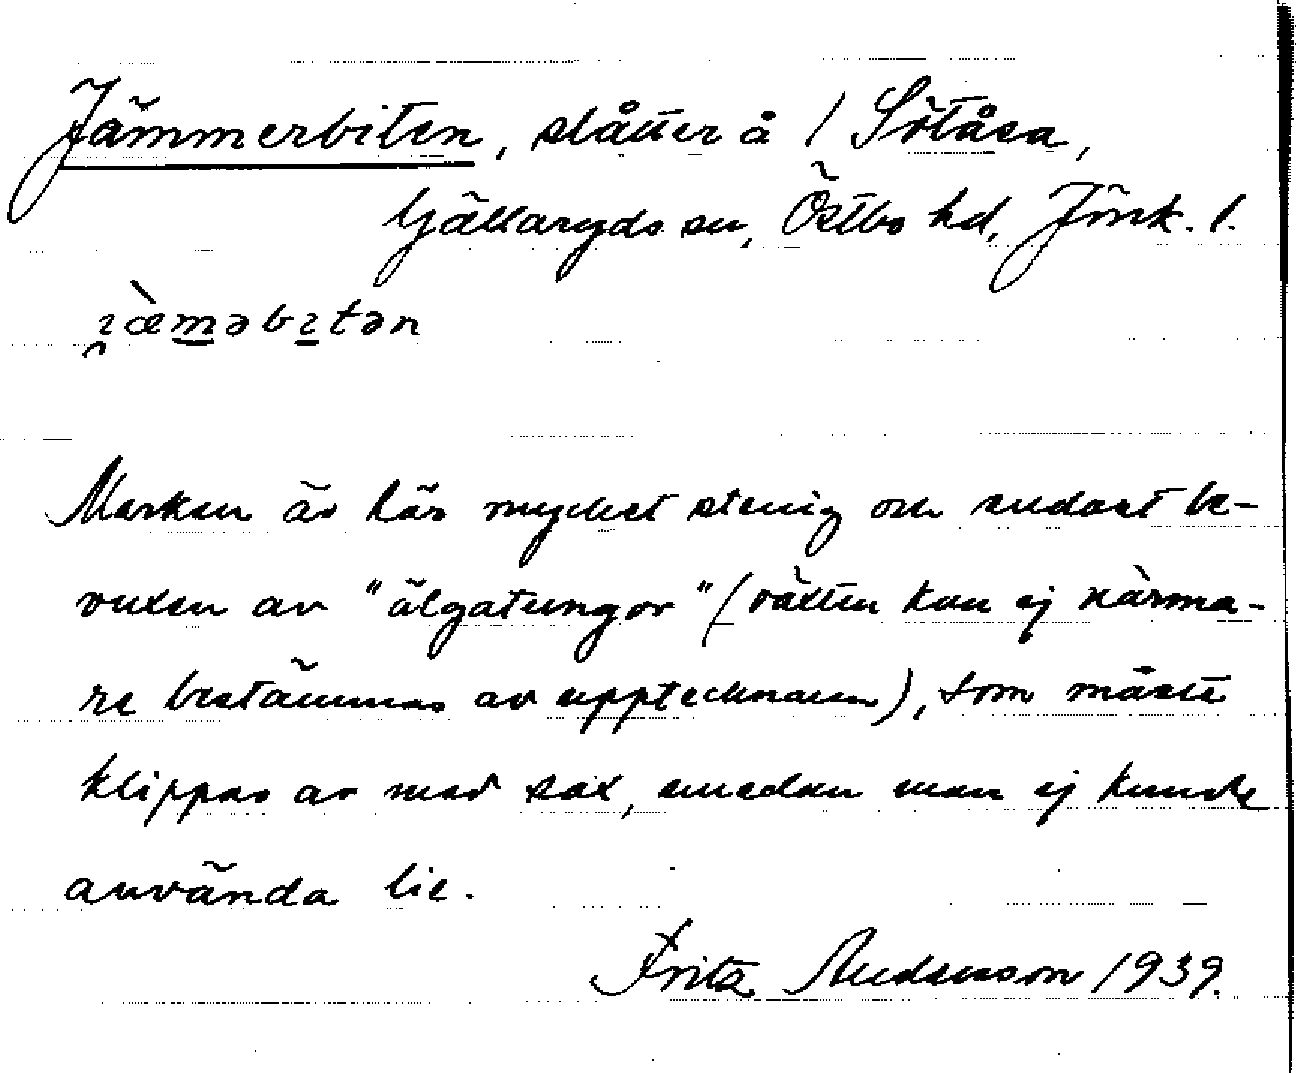 Jämmerbiten, slåtter å / Sötåsa,
Gällaryds sn, Östbo hd, Jönk. l.
ɪ̯æ̀m̲əbɪ̲tən
Marken är här mycket stenig och endast be-
vuxen av "älgatungor" (växten kan ej närma-
re bestämmas av upptecknaren), som måste
klippas av med sax, emedan man ej kunde
använda lie.
Fritz Andersson 1939.